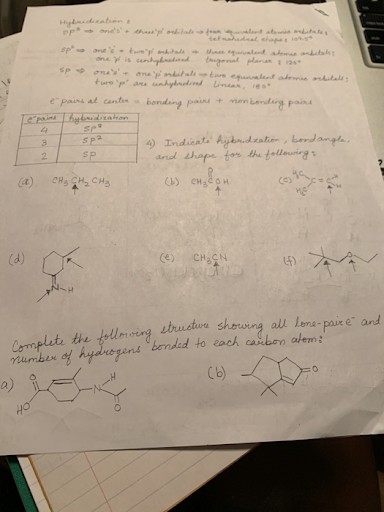 Hybridization :
sp³ ⇒ one 's' + three 'p' orbitals → four equivalent atomic orbitals;
tetrahedral shape; 109.5°
sp² ⇒ one 's' + two 'p' orbitals → three equivalent atomic orbitals;
one 'p' is unhybridized trigonal planar ; 120°
sp ⇒ one 's' + one 'p' orbitals → two equivalent atomic orbitals;
two 'p' are unhybridized Linear, 180°
e⁻ pairs at center = bonding pairs + nonbonding pairs
e⁻ pairs hybridization
4 sp³
3 sp²
2 sp
a) Indicate hybridization, bond angle,
and shape for the following :
(a) CH₃CH₂CH₃
(b) CH₃COH
O
(c) H₃C C=C H
H₃C H
(d)
N-H
(e) CH₃CN
(f) O
Complete the following structure showing all lone-pair e⁻ and
number of hydrogens bonded to each carbon atom :
a) O H
N
HO O
(b) O